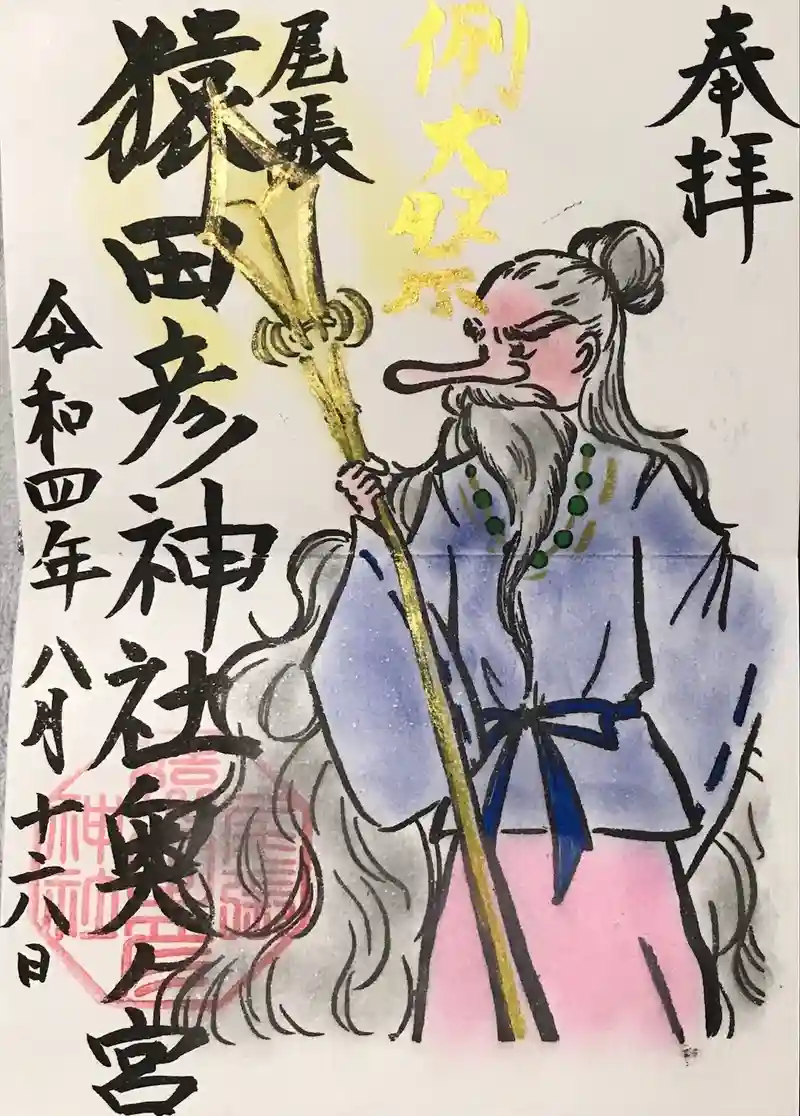 奉拝
例大祭
尾張
猿田彦神社奥之宮
令和四年八月十六日